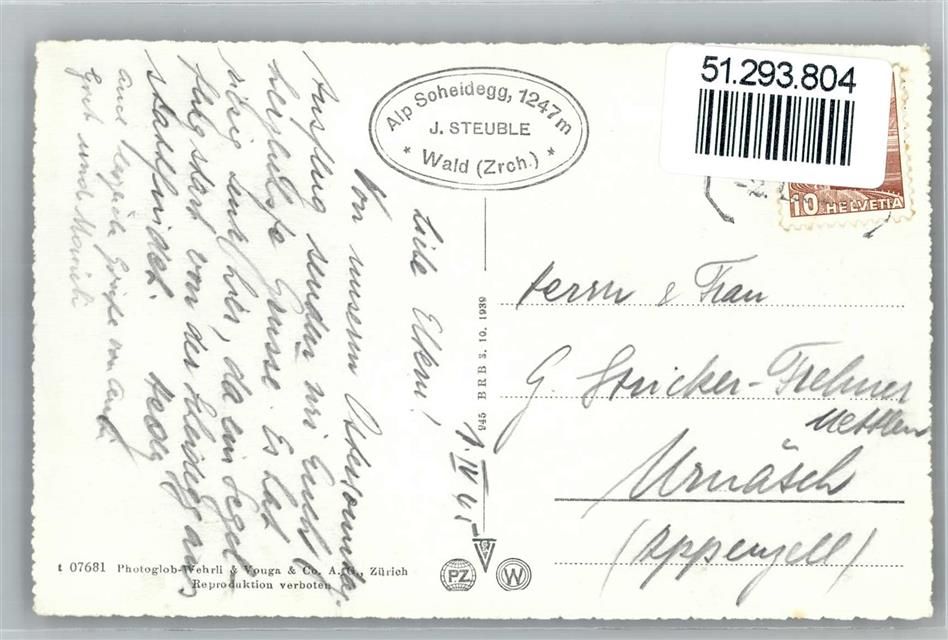 51.293.804
Alp Scheidegg, 1247m
J. STEUBLE
* Wald (Zrch.) *
10 HELVETIA
1. IV 45
Liebe Eltern!
Von unserm Ostersonntag
Ausflug senden wir Euch
herzliche Grüsse. Es hat
viele Leute hier, da ein Segel
flug start von der Scheidegg aus
stattfindet. Georg
und Marieli
Herrn & Frau
G. Stricker-Frehner
Mettlen
Urnäsch
(Appenzell)
945 BRB 3. 10. 1939
t 07681 Photoglob-Wehrli & Vouga & Co. A. G., Zürich
Reproduktion verboten
PZ
W